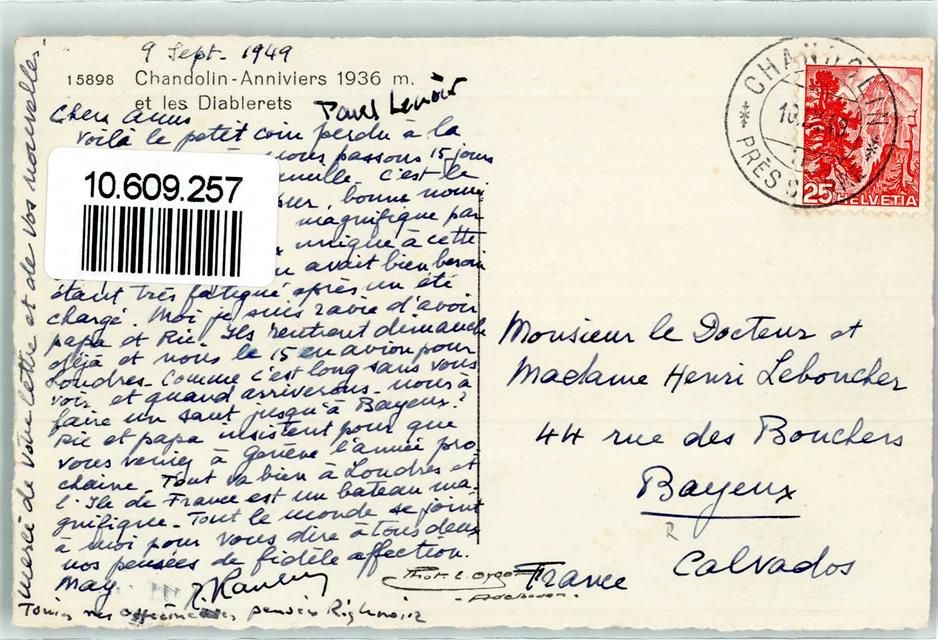 9 Sept. 1949
15898 Chandolin-Anniviers 1936 m.
et les Diablerets
Paul Lenoir
Chers amis
Voilà le petit coin perdu à la
nous passons 15 jours
C'est le
bonne
magnifique par
unique à cette
avait bien besoin
étant très fatigué après un été
chargé. Moi je suis ravie d'avoir
papa et Ric. Ils rentrent dimanche
déjà et nous le 15 en avion pour
Londres. Comme c'est long sans vous
voir et quand arriverons-nous à
faire un saut jusqu'à Bayeux?
Ric et papa insistent pour que
vous veniez à Genève l'année pro
chaine. Tout va bien à Londres et
l'Ile de France est un bateau ma
gnifique. Tout le monde se joint
à moi pour vous dire à tous deux
nos pensées de fidèle affection.
May
merci de votre lettre et de vos nouvelles.
10.609.257
CHANDOLIN
PRÈS S
10
25
HELVETIA
Monsieur le Docteur et
Madame Henri Leboucher
44 rue des Bouchers
Bayeux
Calvados
France
Phot.